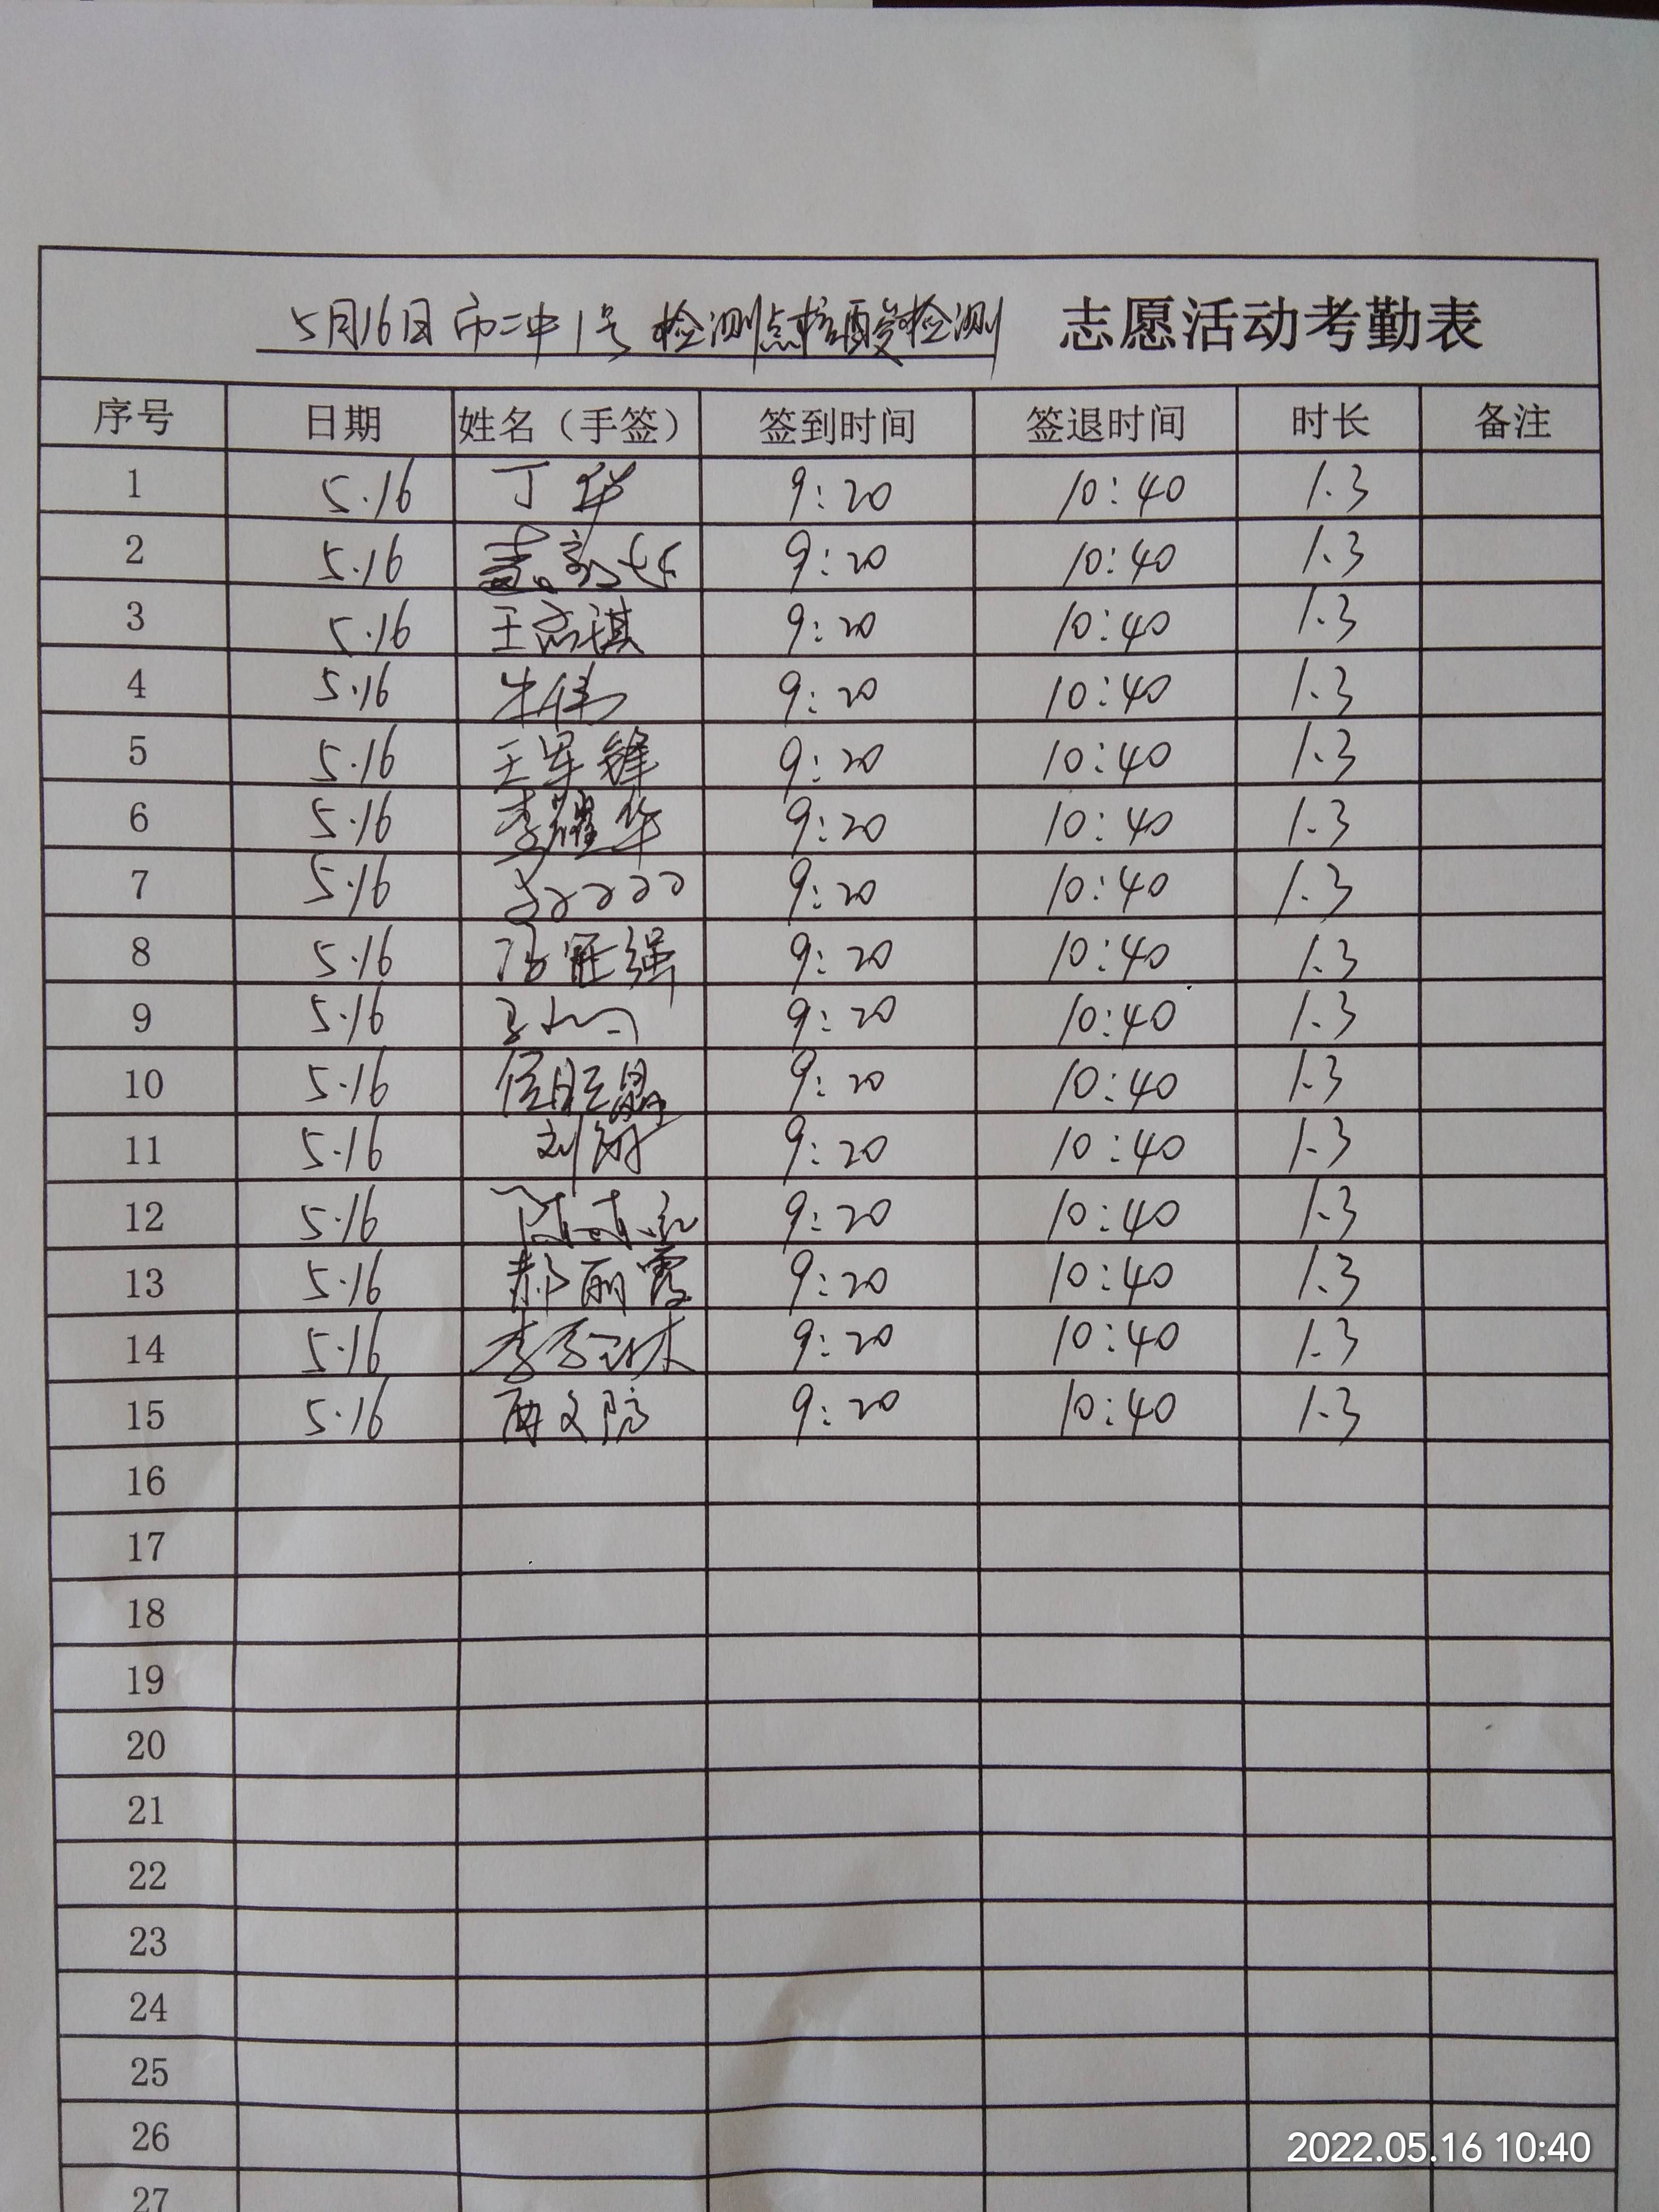 5月16日市二中1号检测点核酸检测 志愿活动考勤表
序号 日期 姓名（手签） 签到时间 签退时间 时长 备注
1 5.16 丁华 9:20 10:40 1.3
2 5.16 9:20 10:40 1.3
3 5.16 王 琪 9:20 10:40 1.3
4 5.16 牛伟 9:20 10:40 1.3
5 5.16 王军锋 9:20 10:40 1.3
6 5.16 李耀华 9:20 10:40 1.3
7 5.16 9:20 10:40 1.3
8 5.16 冠强 9:20 10:40 1.3
9 5.16 9:20 10:40 1.3
10 5.16 9:20 10:40 1.3
11 5.16 刘 9:20 10:40 1.3
12 5.16 陈 9:20 10:40 1.3
13 5.16 郝丽霞 9:20 10:40 1.3
14 5.16 李 林 9:20 10:40 1.3
15 5.16 文 9:20 10:40 1.3
16
17
18
19
20
21
22
23
24
25
26
27
2022.05.16 10:40